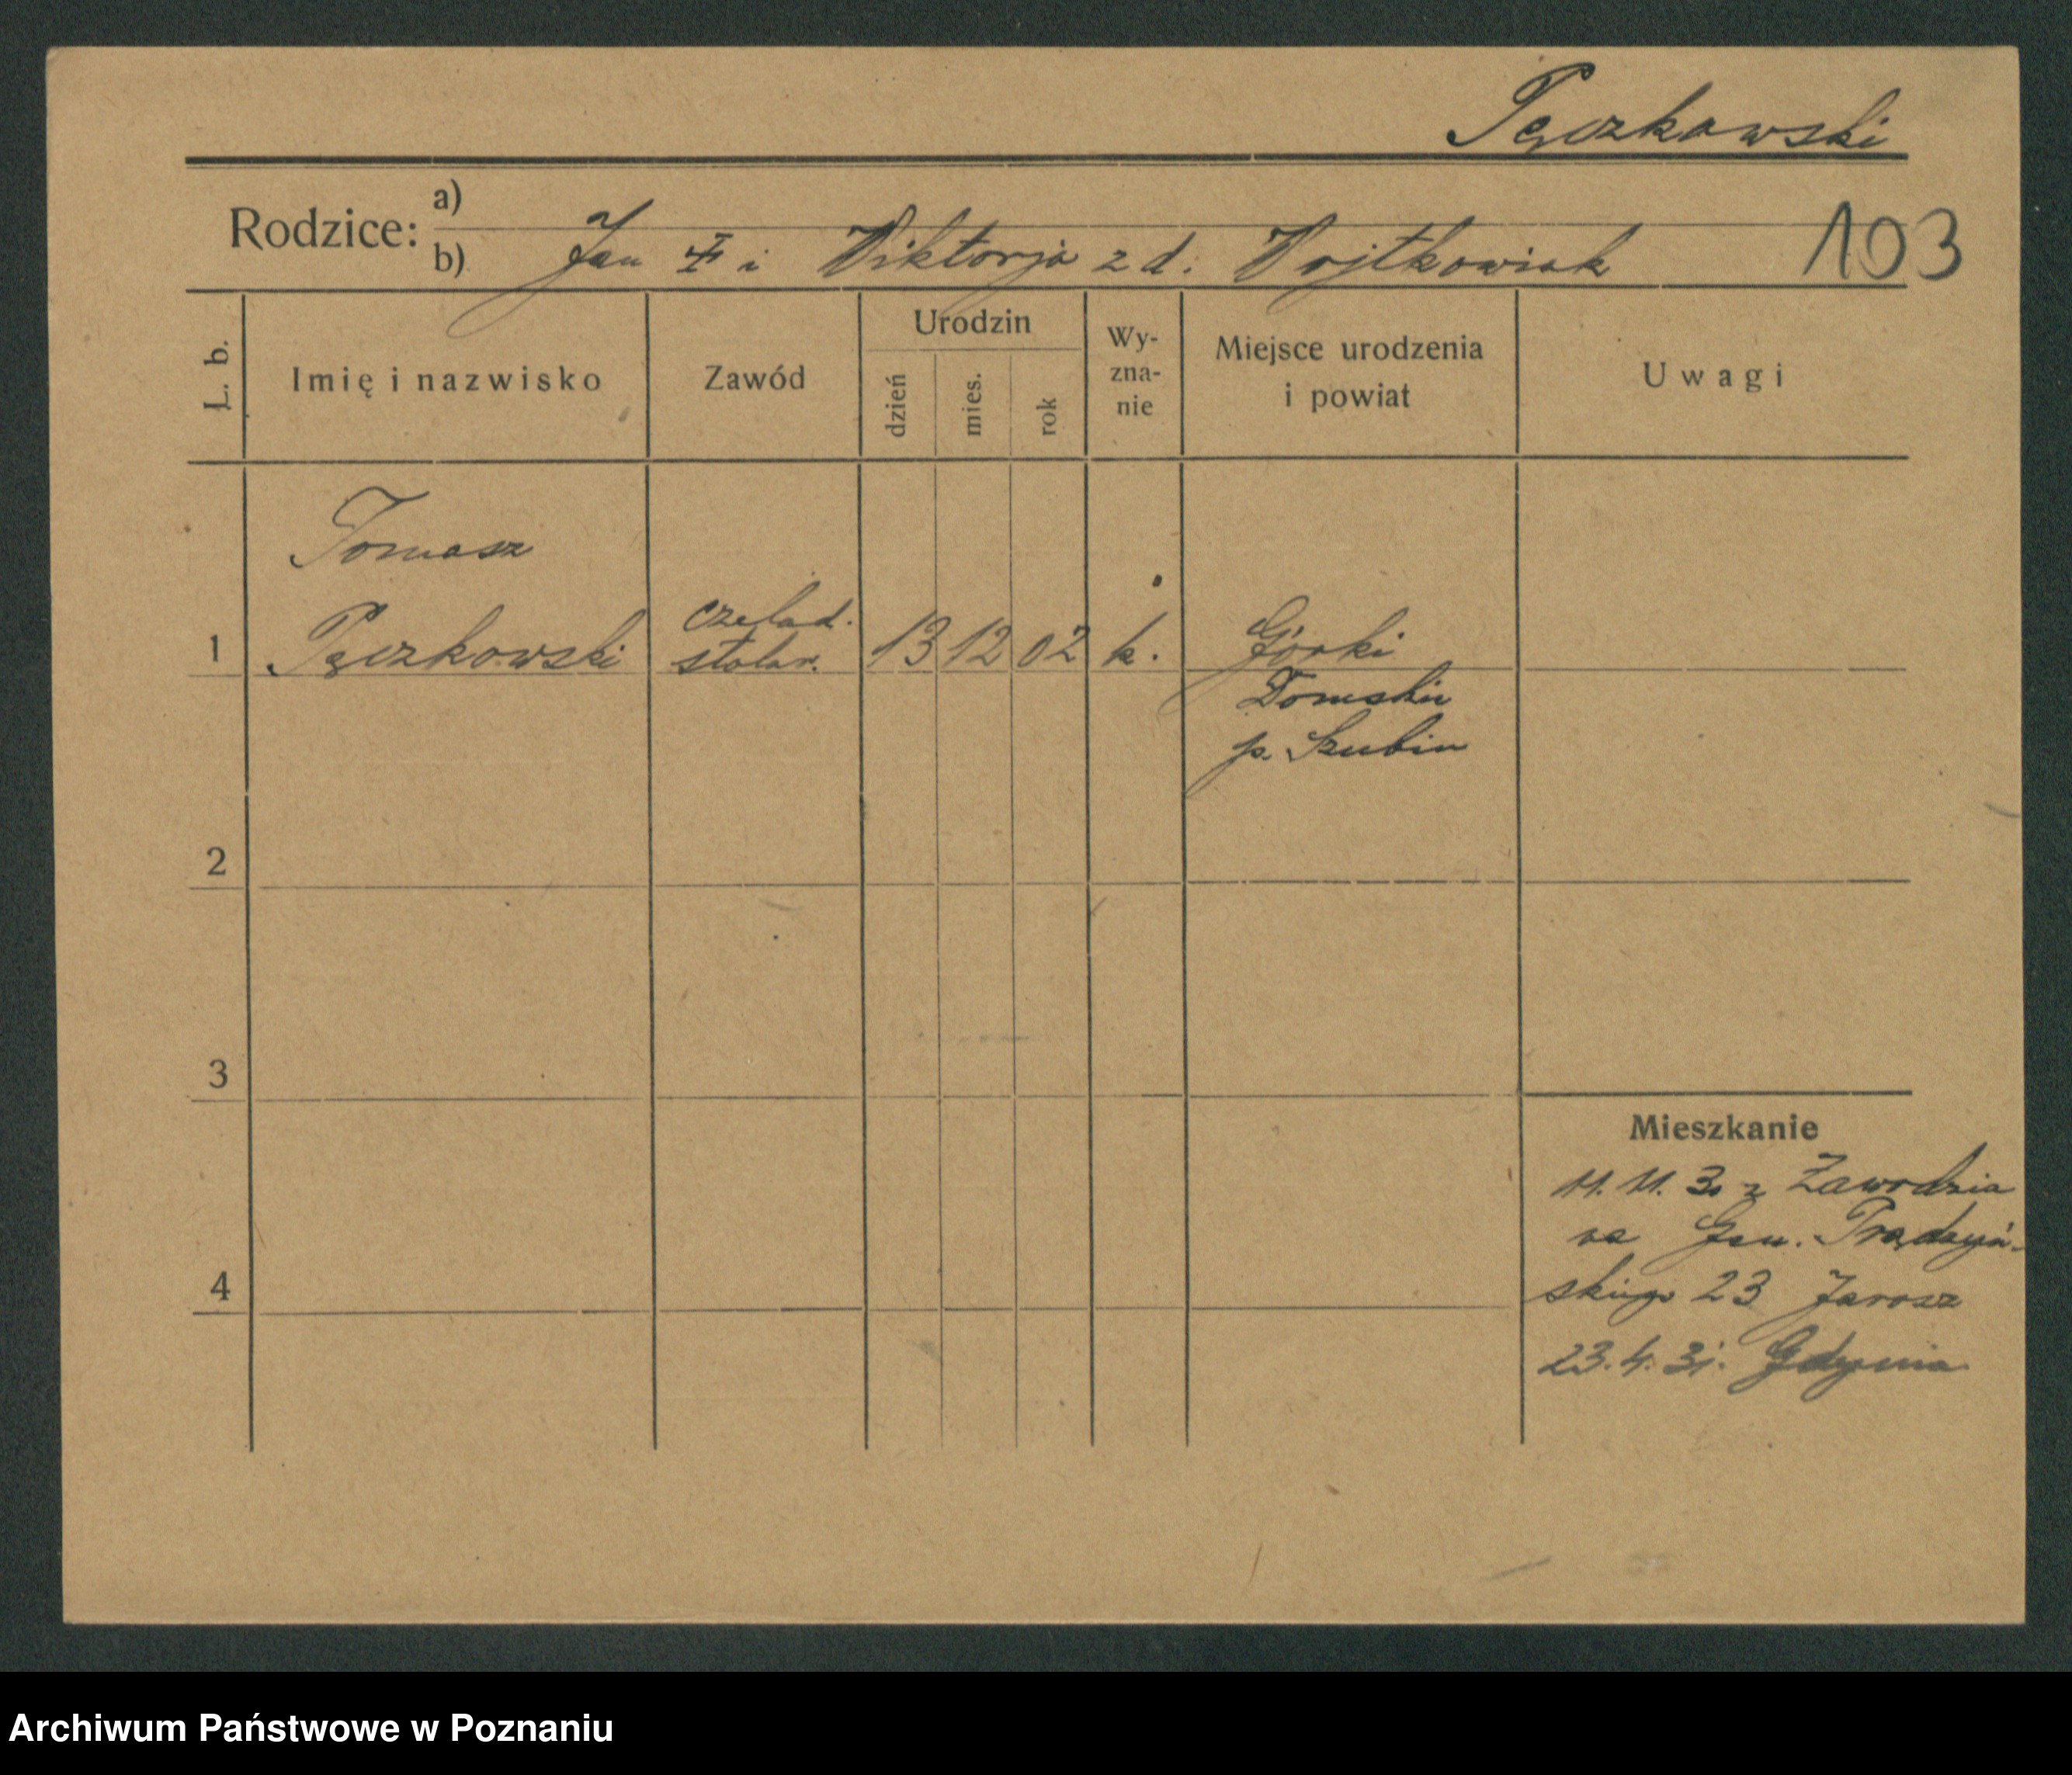 Pęczkowski
Rodzice: a)
b) Jan ‡ i Wiktorja z d. Wojtkowiak 103
L. b. Imię i nazwisko Zawód Urodzin dzień mies. rok Wy-zna-nie Miejsce urodzenia i powiat Uwagi
Tomasz
1 Pęczkowski czelad. stolar. 13 12 02 k. Górki
Domskie
p. Szubin
2
3
Mieszkanie
11. 11. 30 z Zawodzia
na Gen. Prądzyń-
skiego 23 Jarosz
4
23. 4. 31. Gdynia
Archiwum Państwowe w Poznaniu